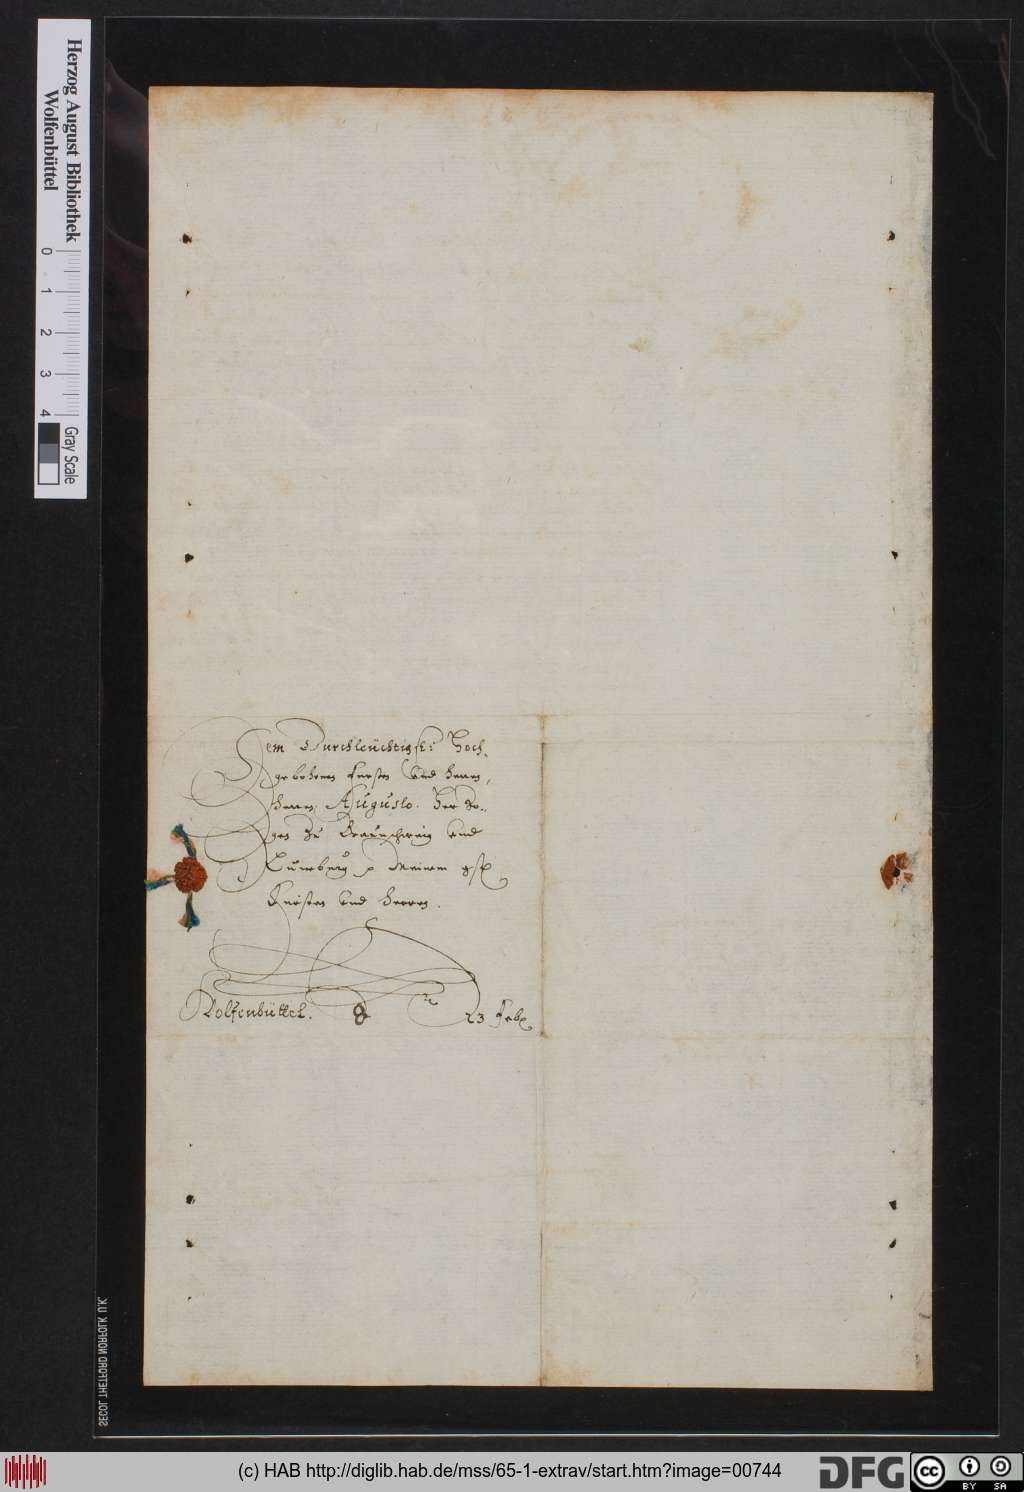 Herzog August Bibliothek
Wolfenbüttel
0 1 2 3 4
Gray Scale
Dem Durchleüchtigst: Hoch,
gebohrnen Fürsten und Herrn,
Herrn Augusto. Hertzo,,
gen zu Braunschweig und
Luneburg p Meinem gst
Fürsten und Herren.
Wolfenbüttel.
23 Feb
SECOL THETFORD NORFOLK U.K.
(c) HAB http://diglib.hab.de/mss/65-1-extrav/start.htm?image=00744
DFG
cc BY SA